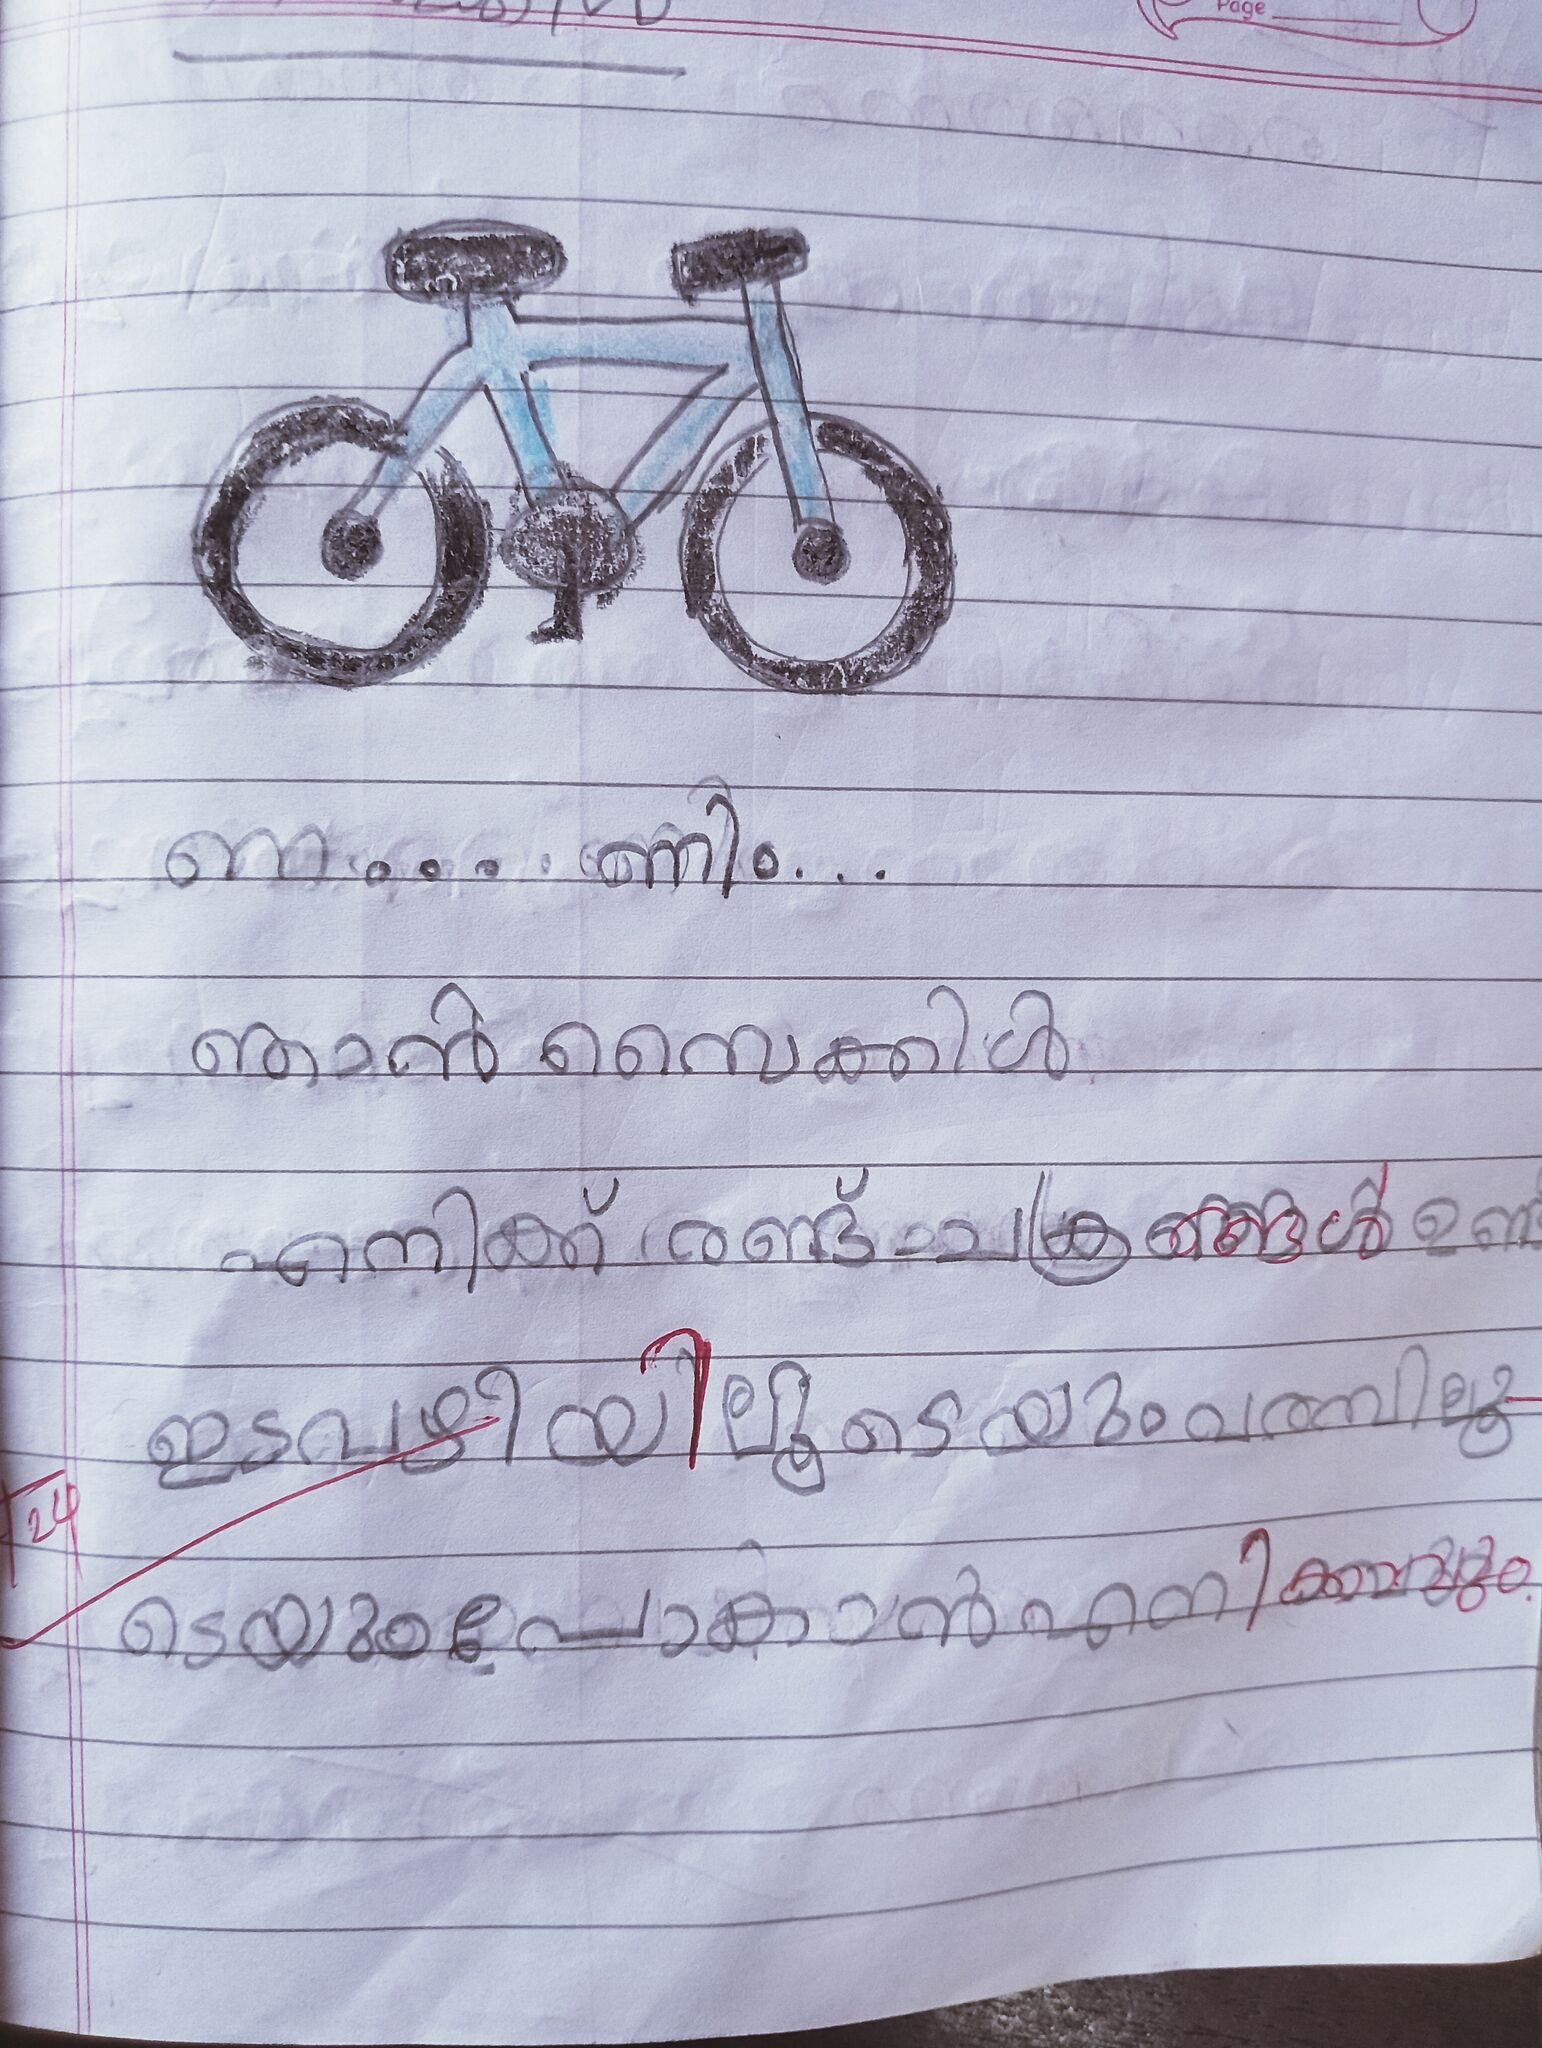 Page
ണ.... ണിം....
ഞാൻ സൈക്കിൾ
എനിക്ക് രണ്ട് ചക്രങ്ങൾ ഉണ്ട്
ഇടവഴിയിലൂടെയും പറമ്പിലൂ
ടെയും പോകാൻ എനിക്കാവും.